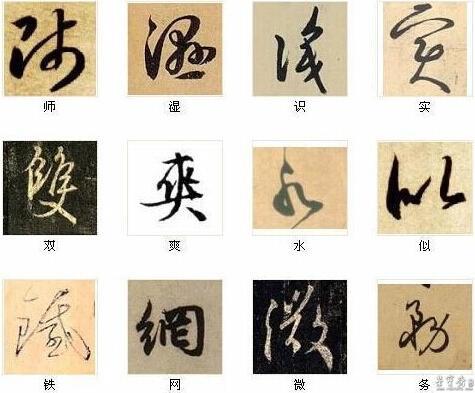 师 湿 识 实
双 爽 水 似
铁 网 微 务